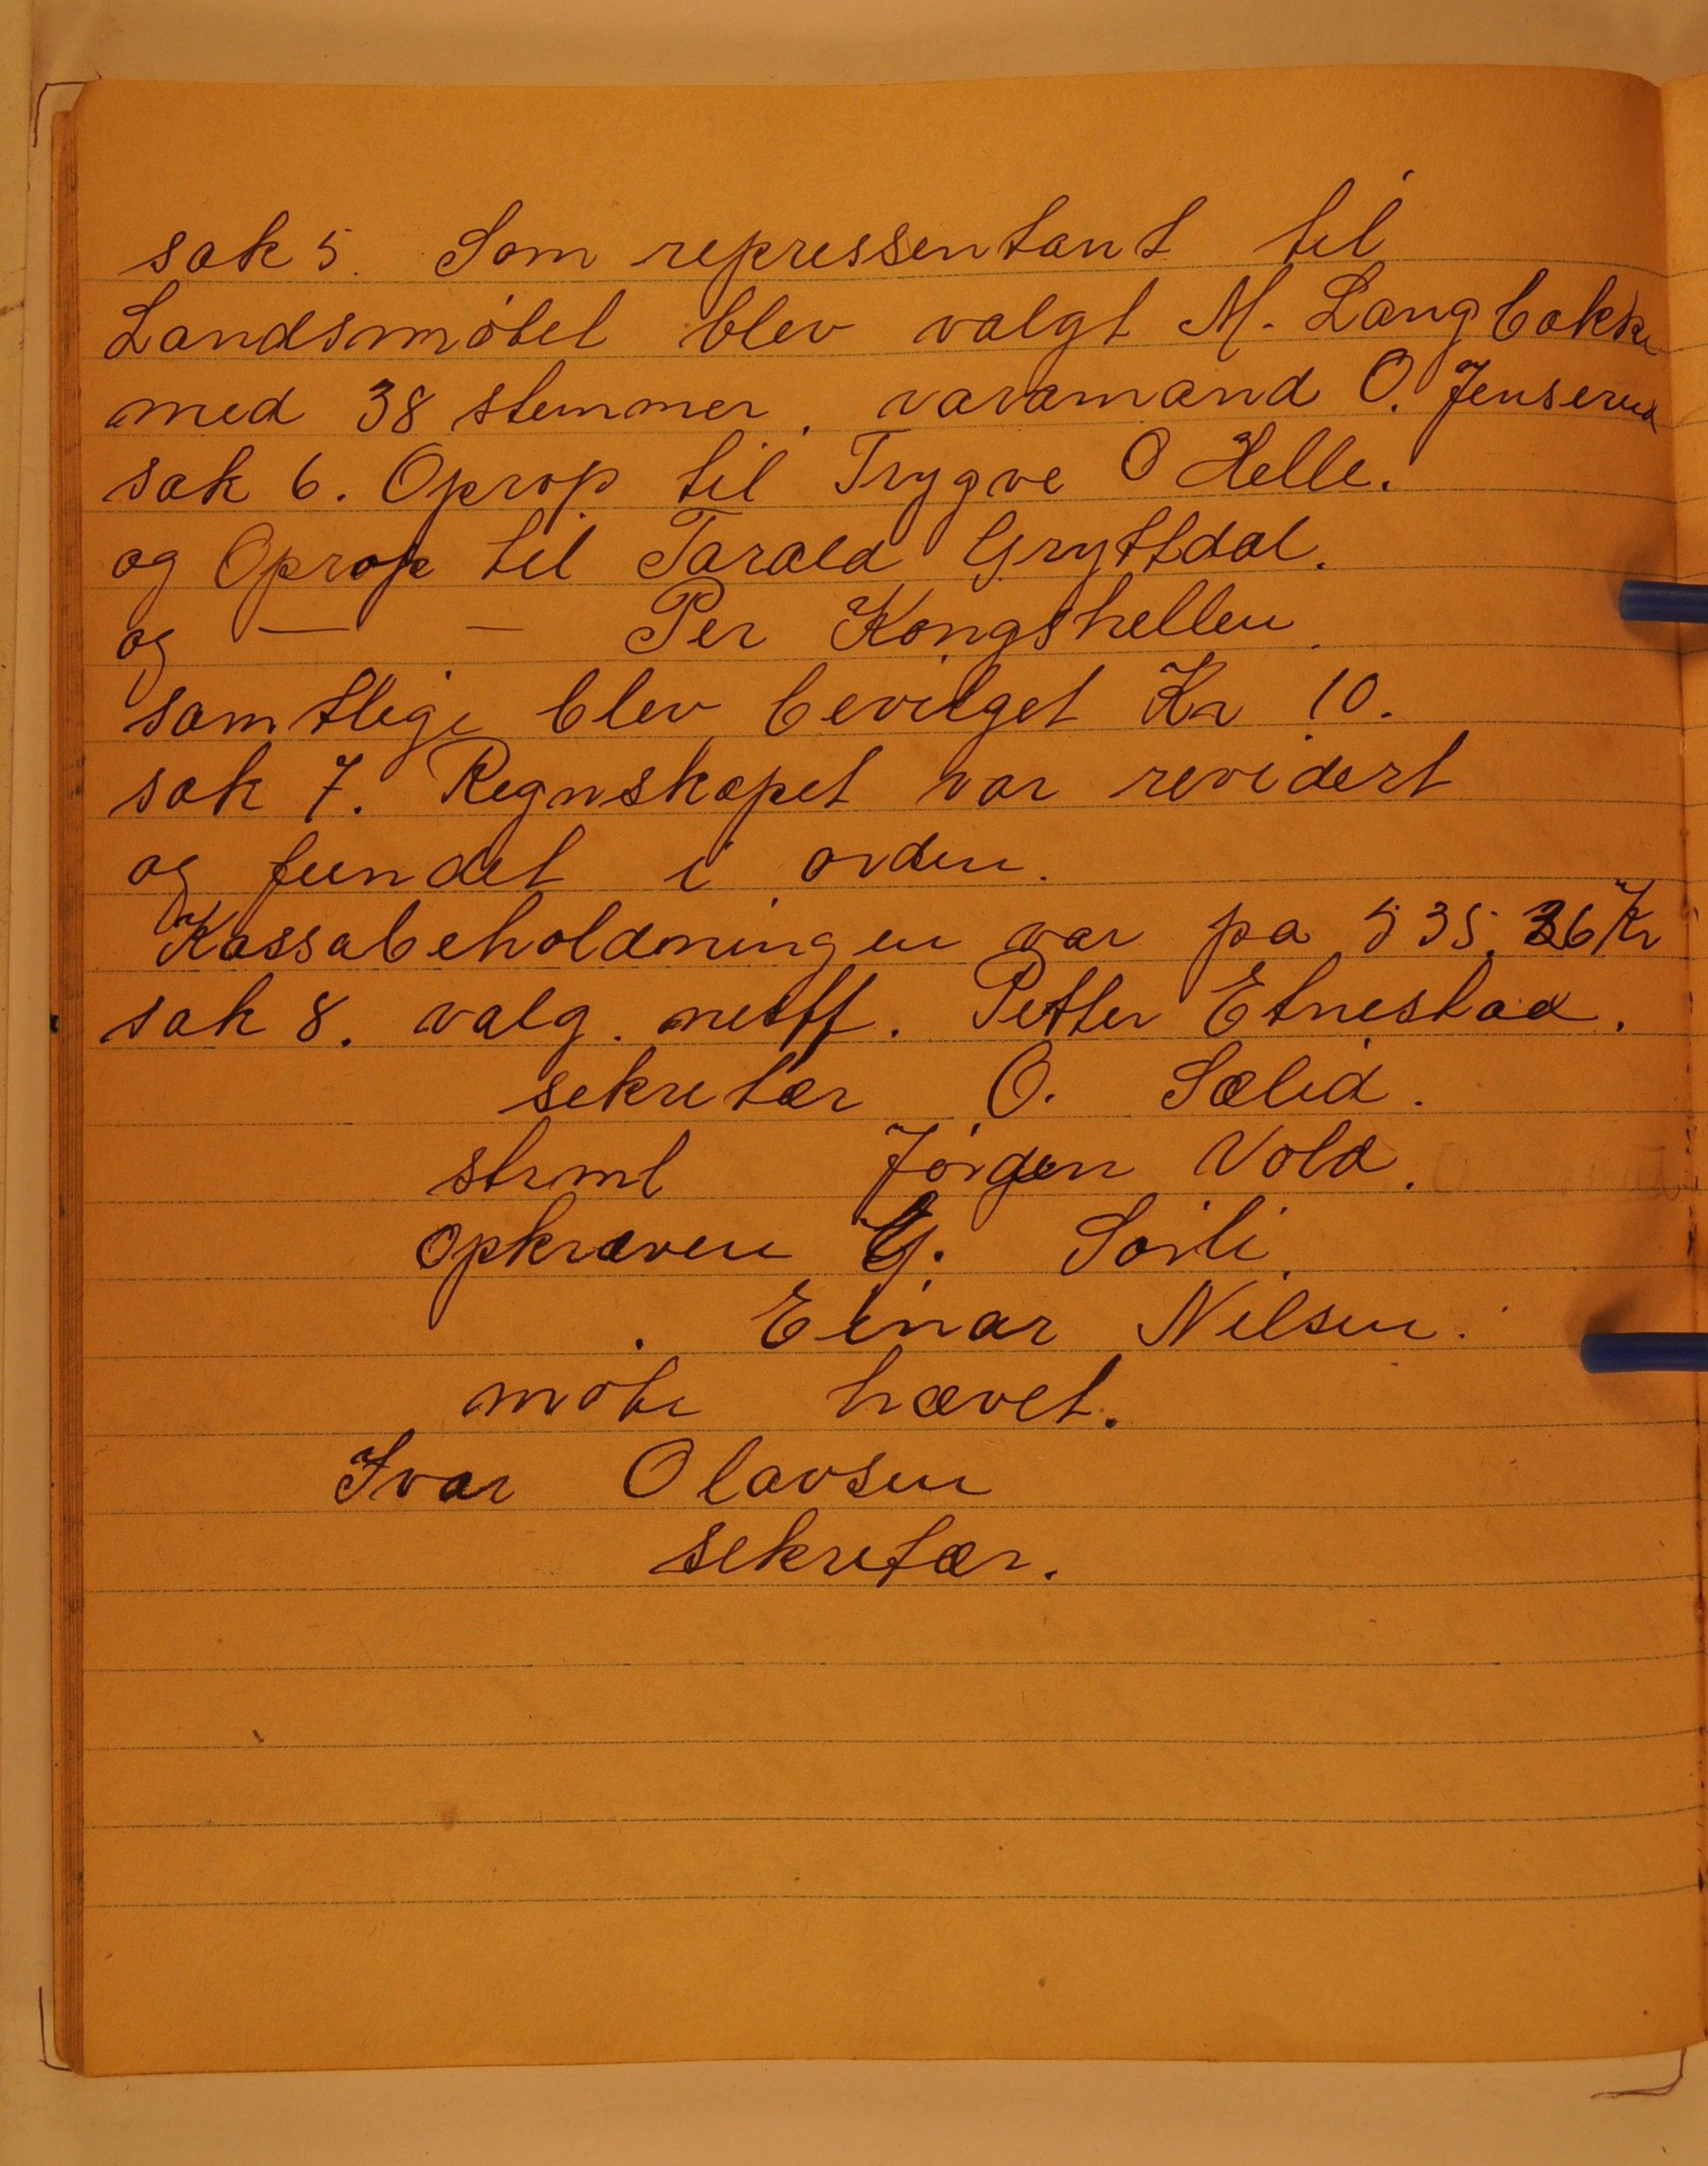 sak 5. Som repressentant til
Landsmøtet blev valgt M. Langbakke
med 38 stemmer. varamand O. Jenserud
sak 6. Oprop til Trygve O Helle.
og Oprop til Tarald Gryttdal.
og — — Per Kongshellen.
samtlige blev bevilget Kr 10.
sak 7. Regnskapet var revidert
og fundet i orden.
Kassabeholdningen var pa 535.36 Kr
sak 8. valg. nestf. Petter Etnestad.
sekretær O. Sælid.
strml Jørgen Vold.
opkræven G. Sørli.
. Einar Nilsen.
møte hævet.
Ivar Olavsen
sekretær.